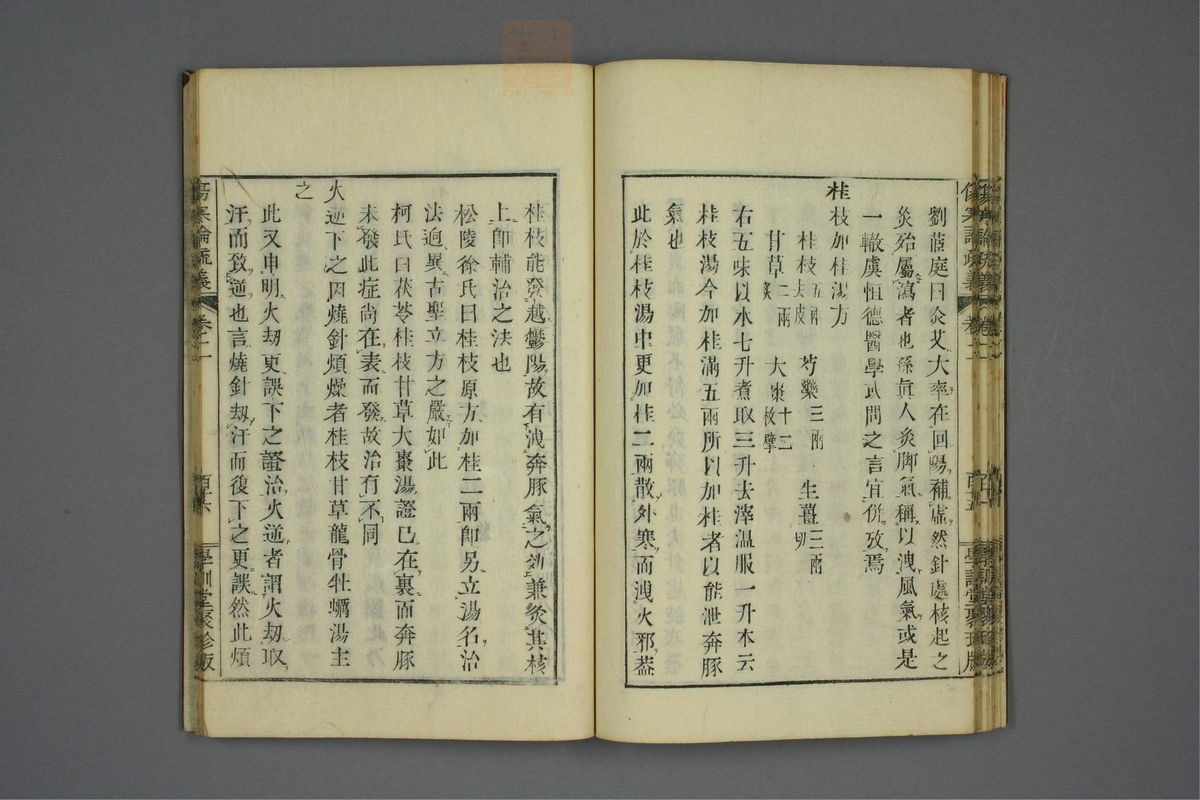 劉蒞庭曰灸艾大率在回陽補虛然針處核起之
灸殆屬瀉者也孫眞人灸脚氣稱以洩風氣或是
一轍虞恒德醫學或問之言宜併攷焉
桂枝加桂湯方
桂枝五兩去皮 芍藥三兩 生薑三兩切
甘草二兩炙 大棗十二枚擘
右五味以水七升煮取三升去滓温服一升本云
桂枝湯今加桂滿五兩所以加桂者以能泄奔豚
氣也
此於桂枝湯中更加桂二兩散外寒而洩火邪葢
傷寒論疏義 卷二 百五 學訓堂聚珍版
桂枝能發越鬱陽故有洩奔豚氣之効兼灸其核
上卽輔治之法也
松陵徐氏曰桂枝原方加桂二兩卽另立湯名治
法逈異古聖立方之嚴如此
柯氏曰茯苓桂枝甘草大棗湯證已在裏而奔豚
未發此症尚在表而發故治有不同
火逆下之因燒針煩燥者桂枝甘草龍骨牡蠣湯主
之
此又申明火劫更誤下之證治火逆者謂火劫取
汗而致逆也言燒針劫汗而後下之更誤然此煩
傷寒論疏義 卷二 百六 學訓堂聚珍版